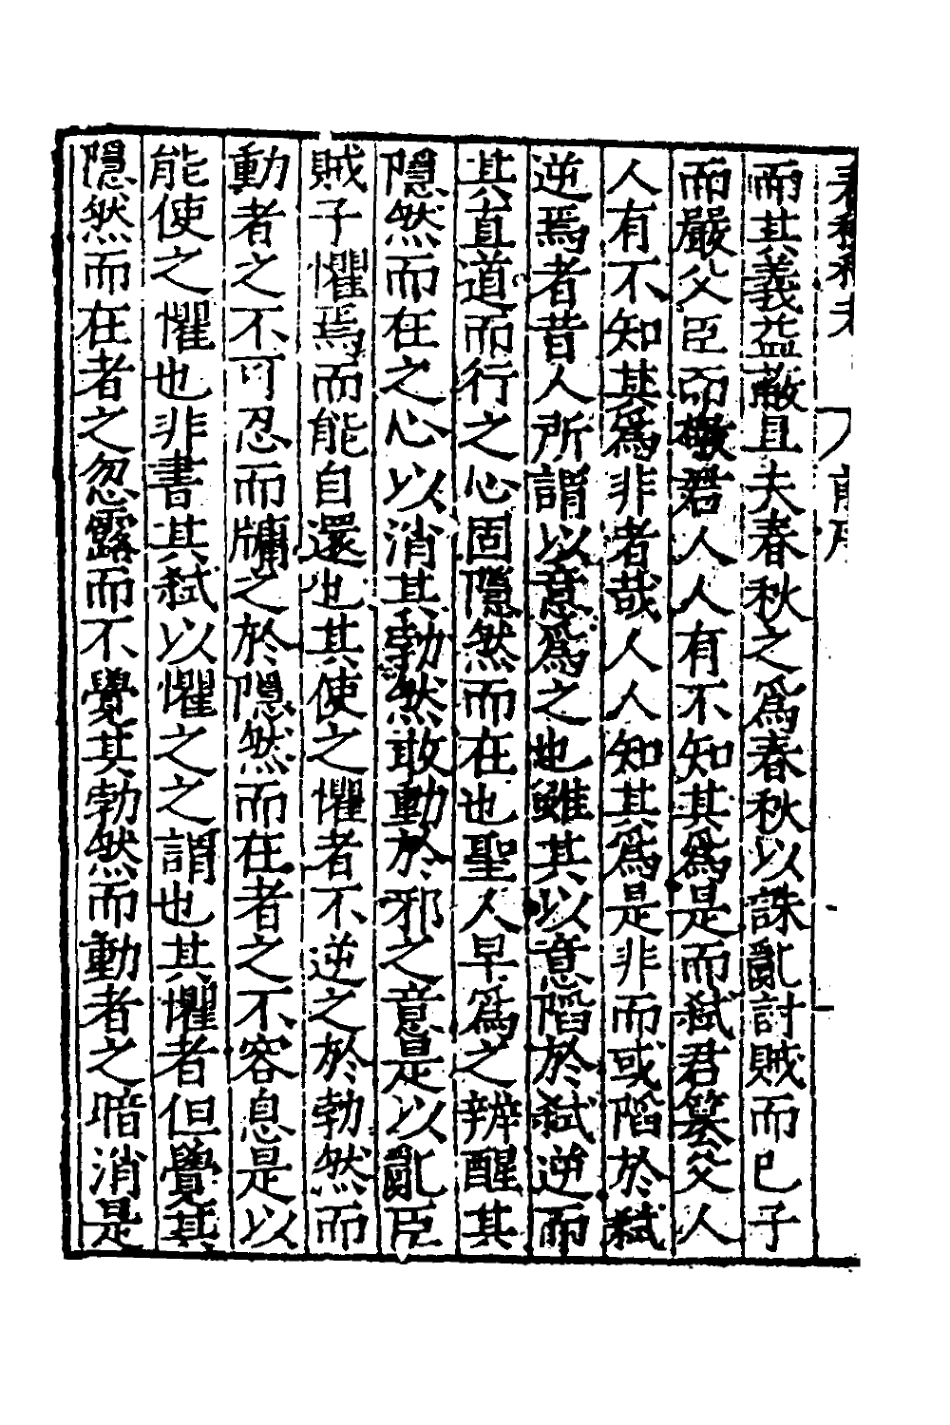 而其義益蔽且夫春秋之爲春秋以誅亂討賊而已子
而嚴父臣而敬君人人有不知其爲是而弑君簒父人
人有不知其爲非者哉人人知其爲是非而或䧟於弑
逆焉者昔人所謂以意爲之也雖其以意䧟於弑逆而
其直道而行之心固隱然而在也聖人早爲之辨醒其
隱然而在之心以消其勃然敢動於邪之意是以亂臣
賊子懼焉而能自還也其使之懼者不逆之於勃然而
動者之不可忍而牗之於隱然而在者之不容息是以
能使之懼也非書其弑以懼之之謂也其懼者但覺其
隱然而在者之忽露而不覺其勃然而動者之暗消是